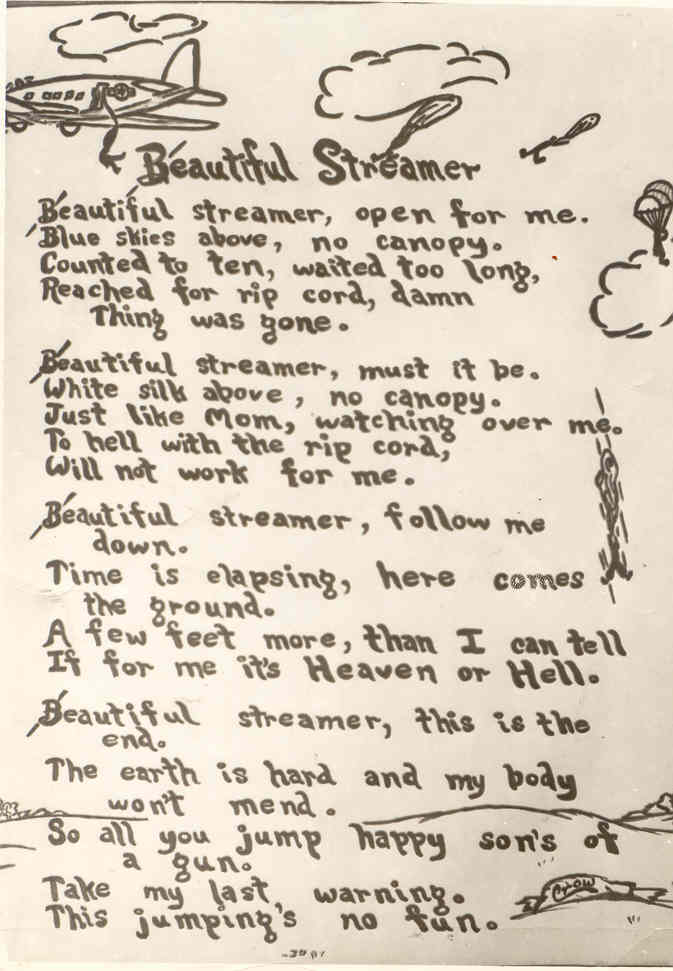 Beautiful Streamer
Beautiful streamer, open for me.
Blue skies above, no canopy.
Counted to ten, waited too long,
Reached for rip cord, damn
Thing was gone.
Beautiful streamer, must it be.
White silk above, no canopy.
Just like Mom, watching over me.
To hell with the rip cord,
Will not work for me.
Beautiful streamer, follow me
down.
Time is elapsing, here comes
the ground.
A few feet more, than I can tell
If for me it's Heaven or Hell.
Beautiful streamer, this is the
end.
The earth is hard and my body
won't mend.
So all you jump happy son's of
a gun.
Take my last warning.
This jumping's no fun.
Crow